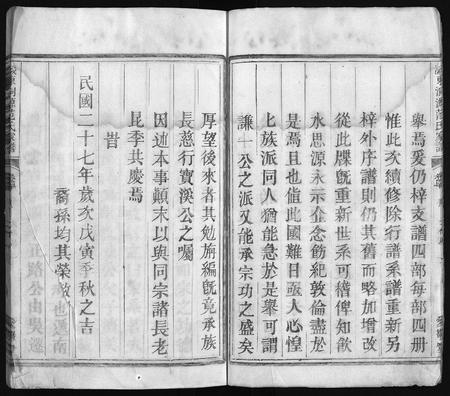 舉焉爰仍梓支譜四部每部四册
惟此次續修除行譜系譜重新另
梓外序譜則仍其舊而略加增改
從此牒既重新世系可稽俾知飲
水思源永示奕念飭紀敦倫盡於
是焉且也值此國難日亟人心惶
上族派同人猶能急於是舉可謂
謙一公之派又能承宗功之盛矣
厚望後來者其勉旃編既竟承族
長慈行寶溪公之囑
因述本事顛末以與同宗諸長老
昆季共慶焉
旹
民國二十七年歲次戊寅季秋之吉
裔孫均其榮敬